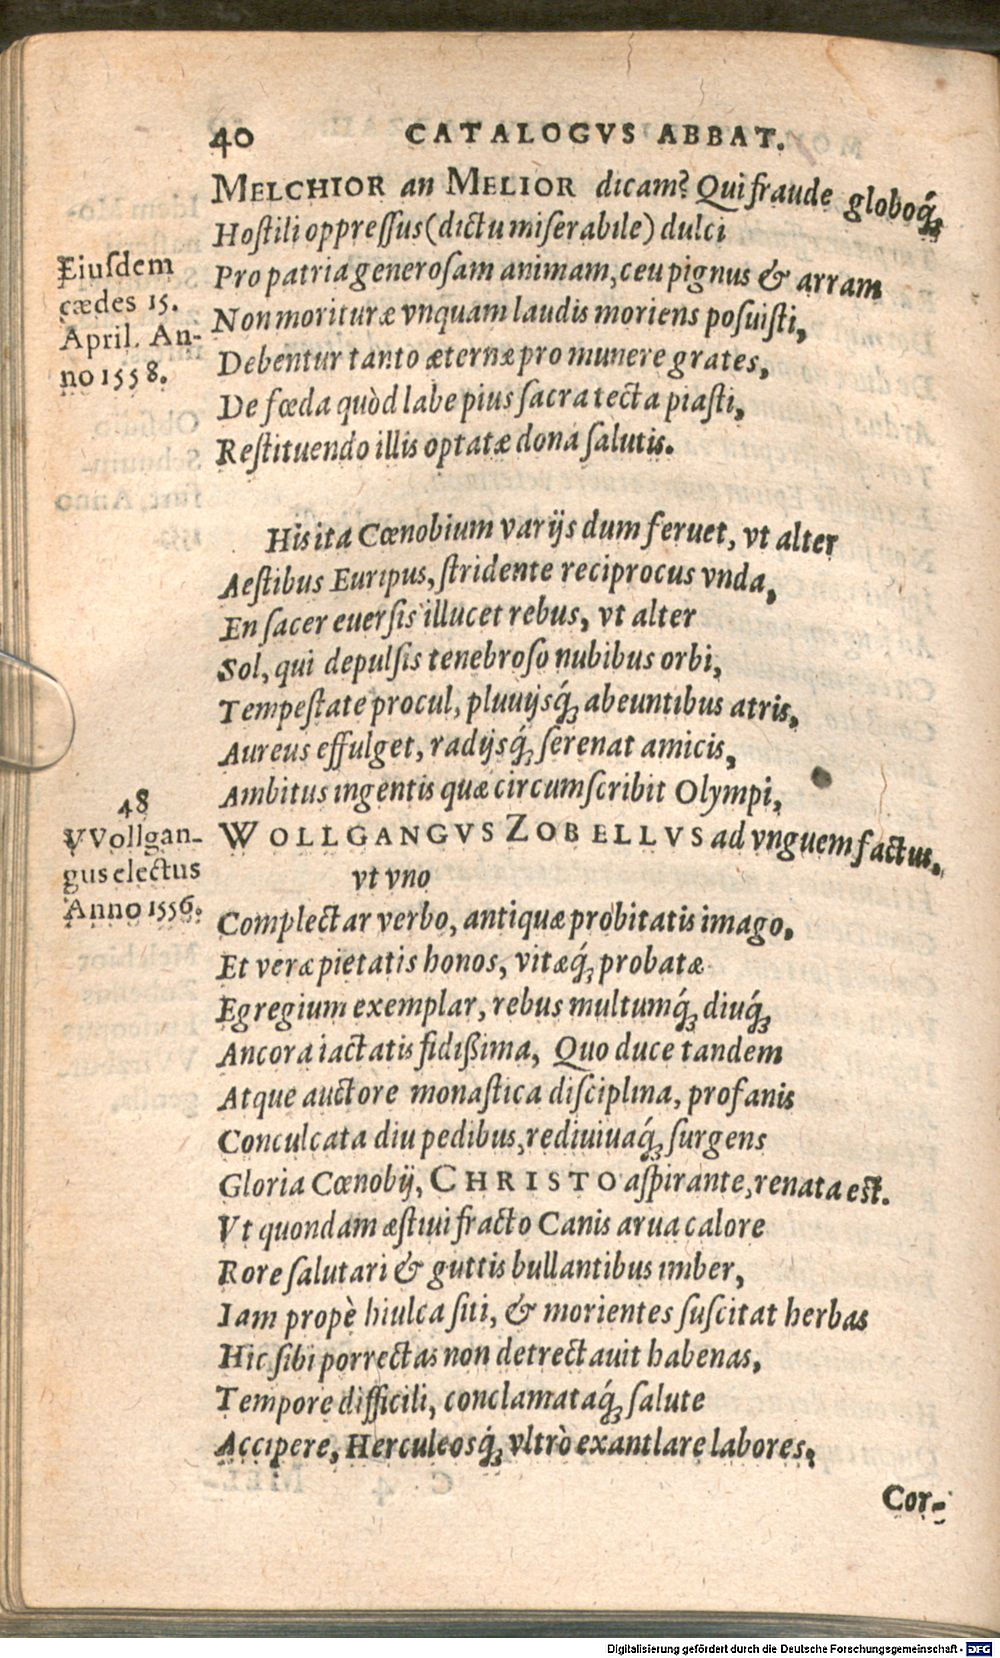 40 CATALOGVS ABBAT.
MELCHIOR an MELIOR dicam? Qui fraude globoq́ꝫ
Hoſtili oppreſſus (dictu miſerabile) dulci
Pro patria generoſam animam, ceu pignus & arram
Non morituræ vnquam laudis moriens poſuiſti,
Debentur tanto æternæ pro munere grates,
De fœda quòd labe pius ſacra tecta piaſti,
Reſtituendo illis optatæ dona ſalutis.
Eiuſdem
cædes 15.
April. An-
no 1558.
His ita Cœnobium varijs dum feruet, vt alter
Aeſtibus Euripus, ſtridente reciprocus vnda,
En ſacer euerſis illucet rebus, vt alter
Sol, qui depulſis tenebroſo nubibus orbi,
Tempeſtate procul, pluuijsq́ꝫ abeuntibus atris,
Aureus effulget, radijsq́ꝫ ſerenat amicis,
Ambitus ingentis quæ circumſcribit Olympi,
WOLLGANGVS ZOBELLVS ad vnguem factus,
vt vno
Complectar verbo, antiquæ probitatis imago,
Et veræ pietatis honos, vitæq́ꝫ probatæ
Egregium exemplar, rebus multumq́ꝫ diuq́ꝫ
Ancora iactatis fidißima, Quo duce tandem
Atque auctore monaſtica diſciplina, profanis
Conculcata diu pedibus, rediuiuaq́ꝫ ſurgens
Gloria Cœnobij, CHRISTO aſpirante, renata eſt.
Vt quondam æſtiui fracto Canis arua calore
Rore ſalutari & guttis bullantibus imber,
Iam propè hiulca ſiti, & morientes ſuſcitat herbas
Hic ſibi porrectas non detrectauit habenas,
Tempore difficili, conclamataq́ꝫ ſalute
Accipere, Herculeosq́ꝫ vltrò exantlare labores,
48
VVollgan-
gus electus
Anno 1556.
Cor-
Digitalisierung gefördert durch die Deutsche Forschungsgemeinschaft - DFG